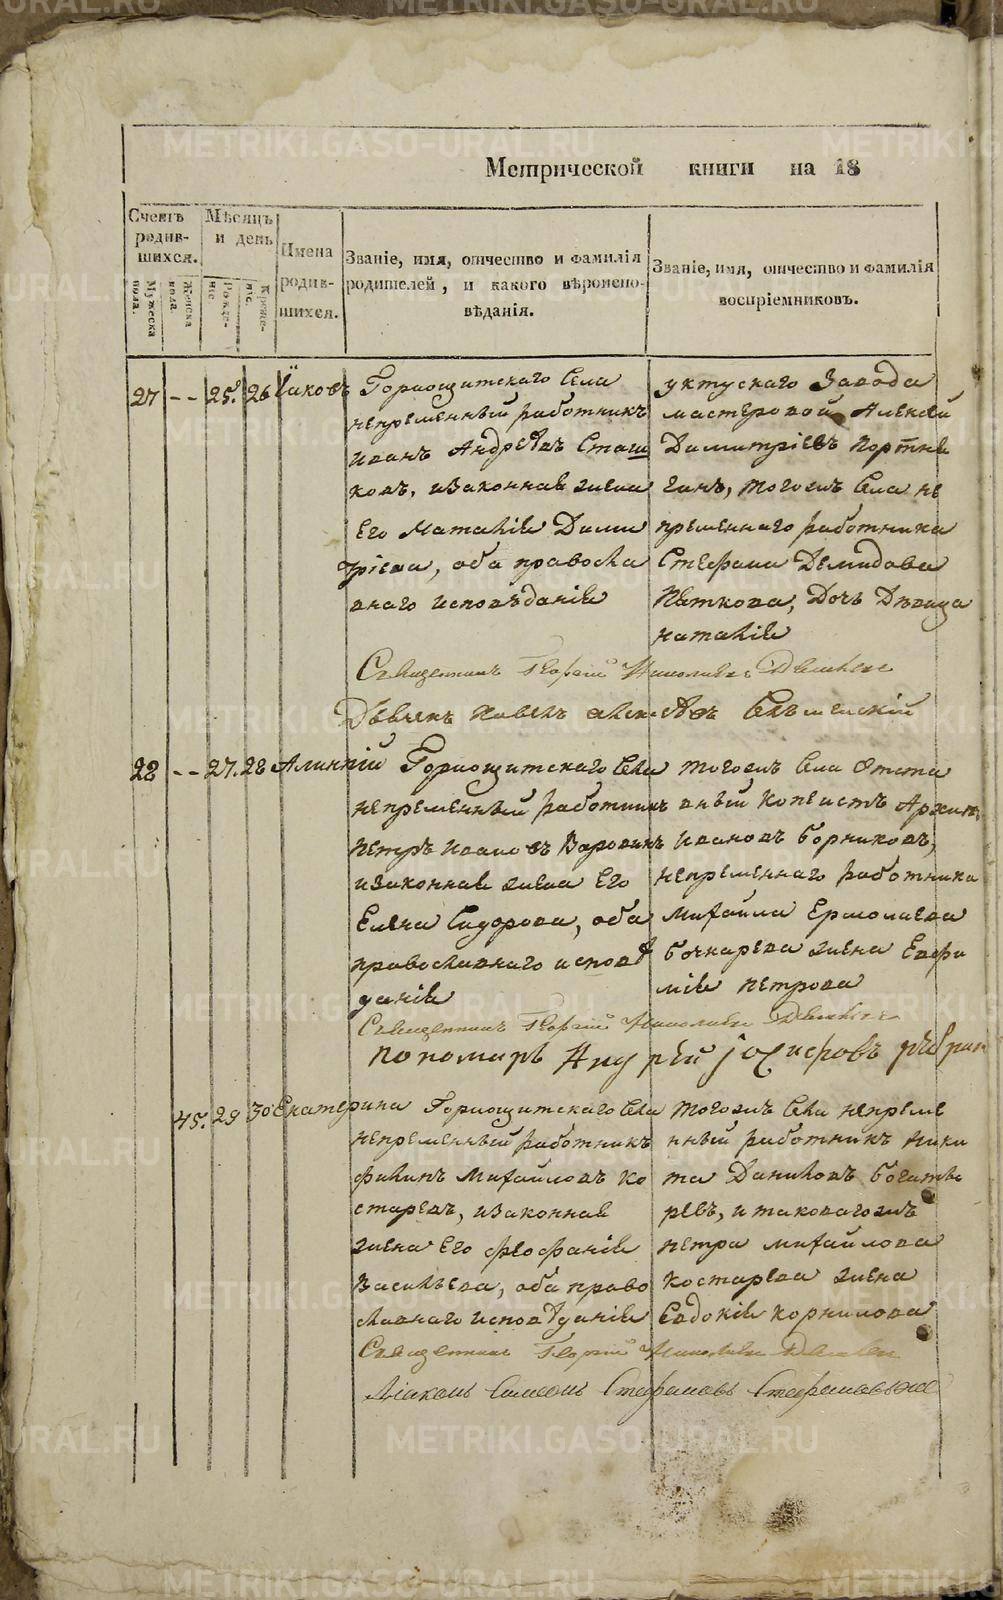 Метрической книги на 18
Счетъ родившихся.
Мѣсяцъ и день
Имена родившихся.
Званіе, имя, отчество и фамилія родителей, и какого вѣроисповѣданія.
Званіе, имя, отчество и фамилія воспріемниковъ.
Мужеска пола.
Женска пола.
Рожденіе
Крещеніе.
27 -- 25. 26 Іаковъ
Горнощитскаго Села
непременный работникъ
Иванъ Андреѣвъ Сташ
ковъ, изаконная жена
Его Наталія Дими
тріева, оба правосла
внаго исповѣданія
уктускаго Завода
мастеровой Алексей
Димитріевъ Портня
гинъ, тогожъ Села не
пременнаго работника
Стефана Демидова
Пяткова, Дочь Дѣвица
наталія
Священникъ Георгій Николаевъ
Дьячекъ Павелъ
28 -- 27. 28 Алимпій
Горнощитскаго Села
непременный работникъ
Петръ Ивановъ Воронинъ
изаконная жена Его
Елена Сидорова, оба
православнаго исповѣ
данія
тогожъ Села Отста
вный копеистъ
Ивановъ Борниковъ,
непременнаго работника
Михайла Ермолаева
бочкарева жена Евфи
мія петрова
Священникъ Георгій Николаевъ
пономарь Андрей Іосифовъ
45. 29 30 Екатерина
Горнощитскаго Села
непременный работникъ
филипъ Михайловъ Ко
старевъ, изаконная
жена Его феофанія
Васильева, оба право
славнаго исповѣданія
тогожъ Села непреме
нный работникъ Ники
та Даниловъ богаты
ревъ, и таковагожъ
петра михайлова
костарева жена
Евдокія корнилова
Священникъ Георгій Николаевъ
Діаконъ Симеонъ Стефановъ